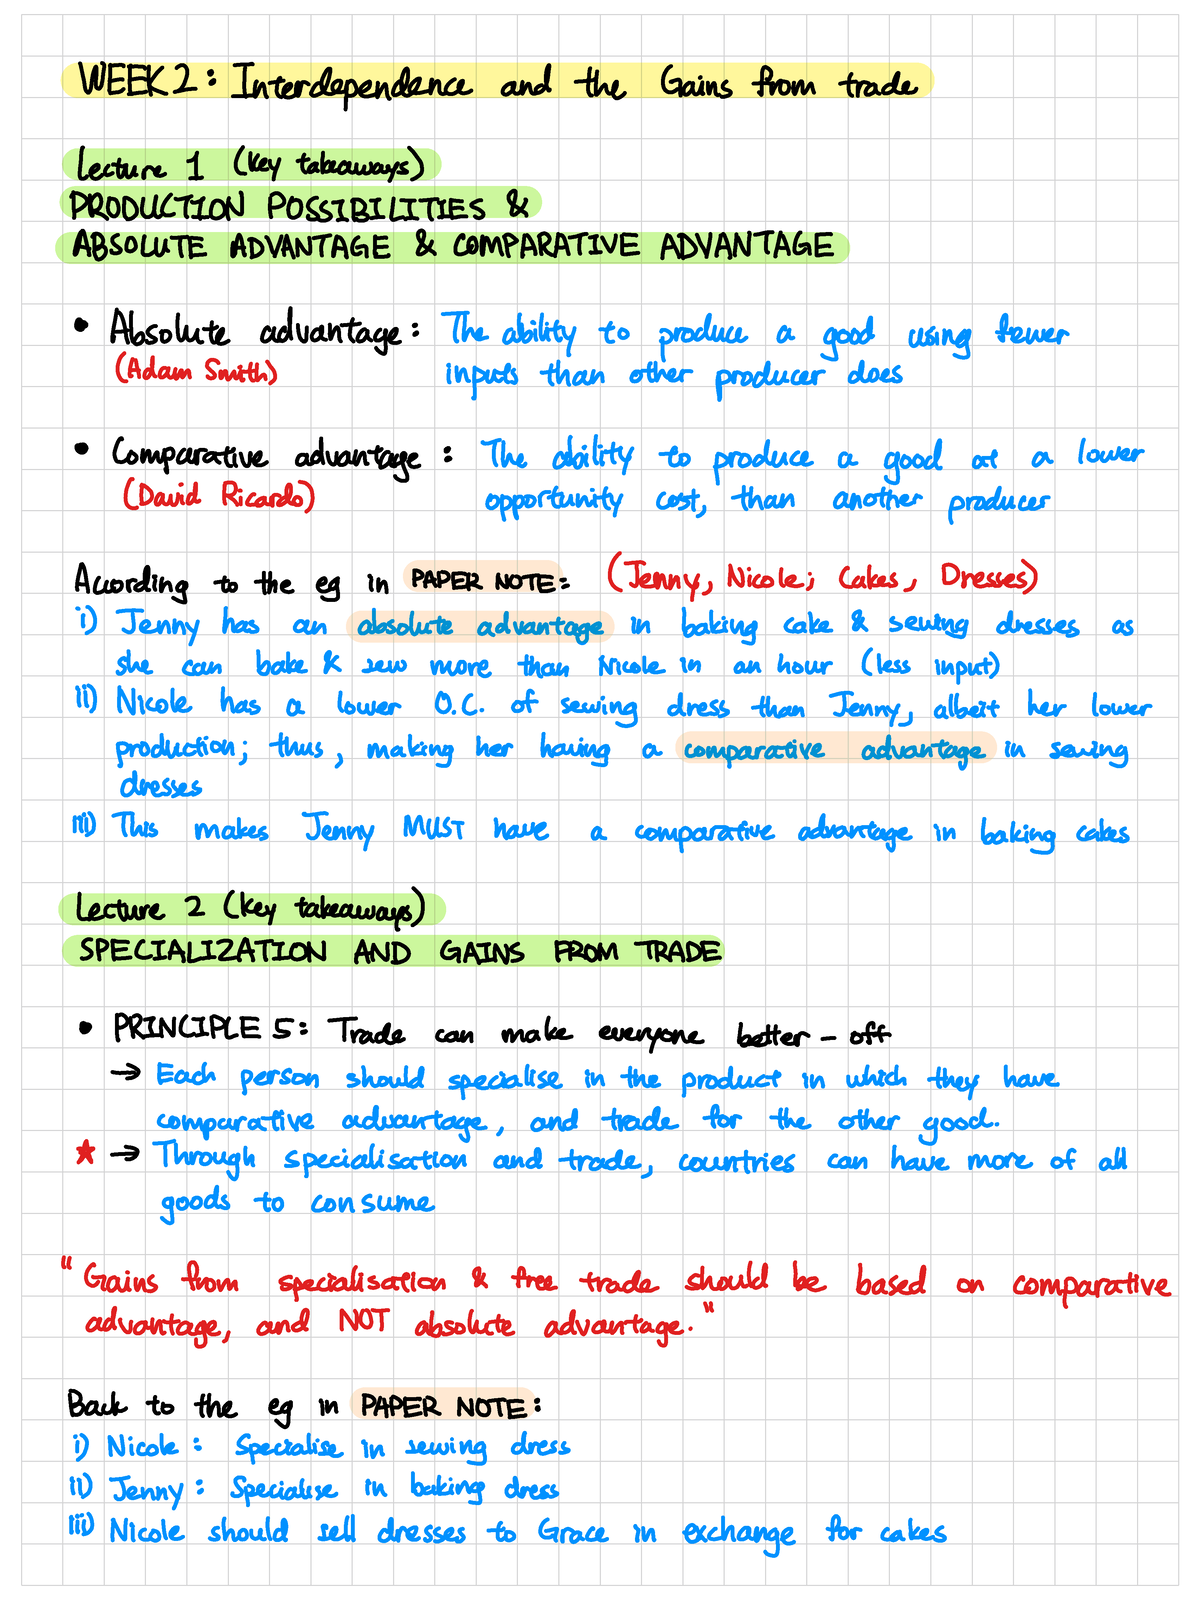 WEEK 2: Interdependence and the Gains from trade
Lecture 1 (Key takeaways)
PRODUCTION POSSIBILITIES &
ABSOLUTE ADVANTAGE & COMPARATIVE ADVANTAGE
• Absolute advantage: The ability to produce a good using fewer
(Adam Smith) inputs than other producer does
• Comparative advantage: The ability to produce a good at a lower
(David Ricardo) opportunity cost, than another producer
According to the eg in PAPER NOTE: (Jenny, Nicole; Cakes, Dresses)
i) Jenny has an absolute advantage in baking cake & sewing dresses as
she can bake & sew more than Nicole in an hour (less input)
ii) Nicole has a lower O.C. of sewing dress than Jenny, albeit her lower
production; thus, making her having a comparative advantage in sewing
dresses
iii) This makes Jenny MUST have a comparative advantage in baking cakes
Lecture 2 (Key takeaways)
SPECIALIZATION AND GAINS FROM TRADE
• PRINCIPLE 5: Trade can make everyone better-off
→ Each person should specialise in the product in which they have
comparative advantage, and trade for the other good.
★ → Through specialisation and trade, countries can have more of all
goods to consume
"Gains from specialisation & free trade should be based on comparative
advantage, and NOT absolute advantage."
Back to the eg in PAPER NOTE:
i) Nicole: Specialise in sewing dress
ii) Jenny: Specialise in baking dress
iii) Nicole should sell dresses to Grace in exchange for cakes